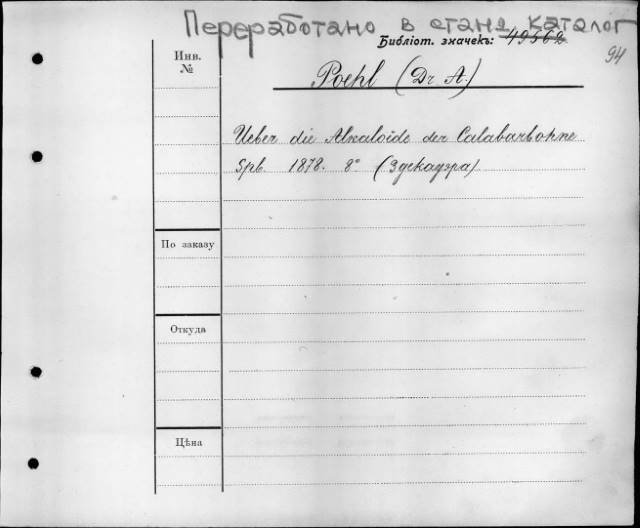 Переработано в станд каталог
Библіот. значекъ: 49562
94
Инв. №
Poehl (Dr A.)
Ueber die Alkaloide der Calabarbohne
Spb. 1878. 8° (3 декаэра)
По заказу
Откуда
Цѣна